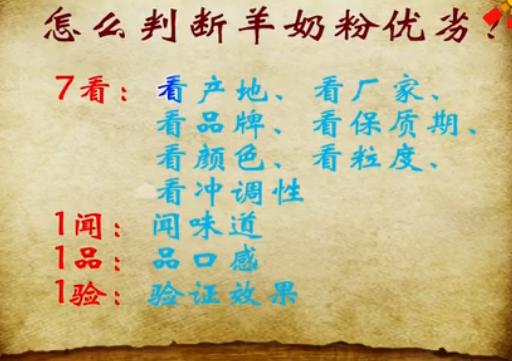 怎么判断羊奶粉优劣?
7看：看产地、看厂家、
看品牌、看保质期、
看颜色、看粒度、
看冲调性
1闻：闻味道
1品：品口感
1验：验证效果